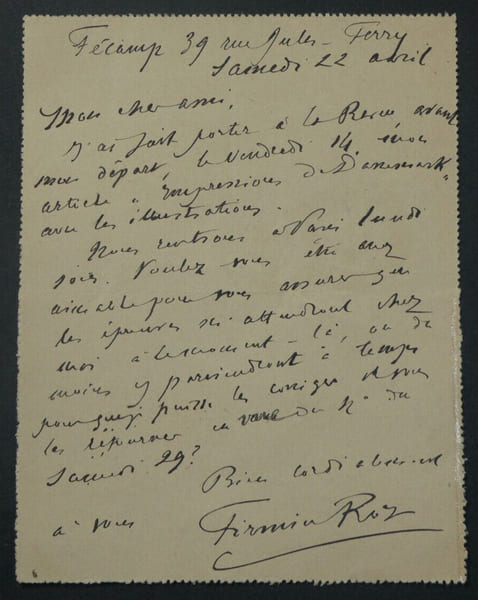 Fécamp 39 rue Jules-Ferry
Samedi 22 avril
Mon cher ami,
J'ai fait porter à la Revue, avant
mon départ, le vendredi 14, mon
article "Impressions de Danemark"
avec les illustrations.
Nous rentrons à Paris lundi
soir. Voulez vous être assez
aimable pour vous assurer que
les épreuves m'attendront chez
moi à ce moment-là, ou du
moins y parviendront à temps
pour que je puisse les corriger et vous
les retourner en vue du N° du
Samedi 29?
Bien cordialement
à vous
Firmin Roz